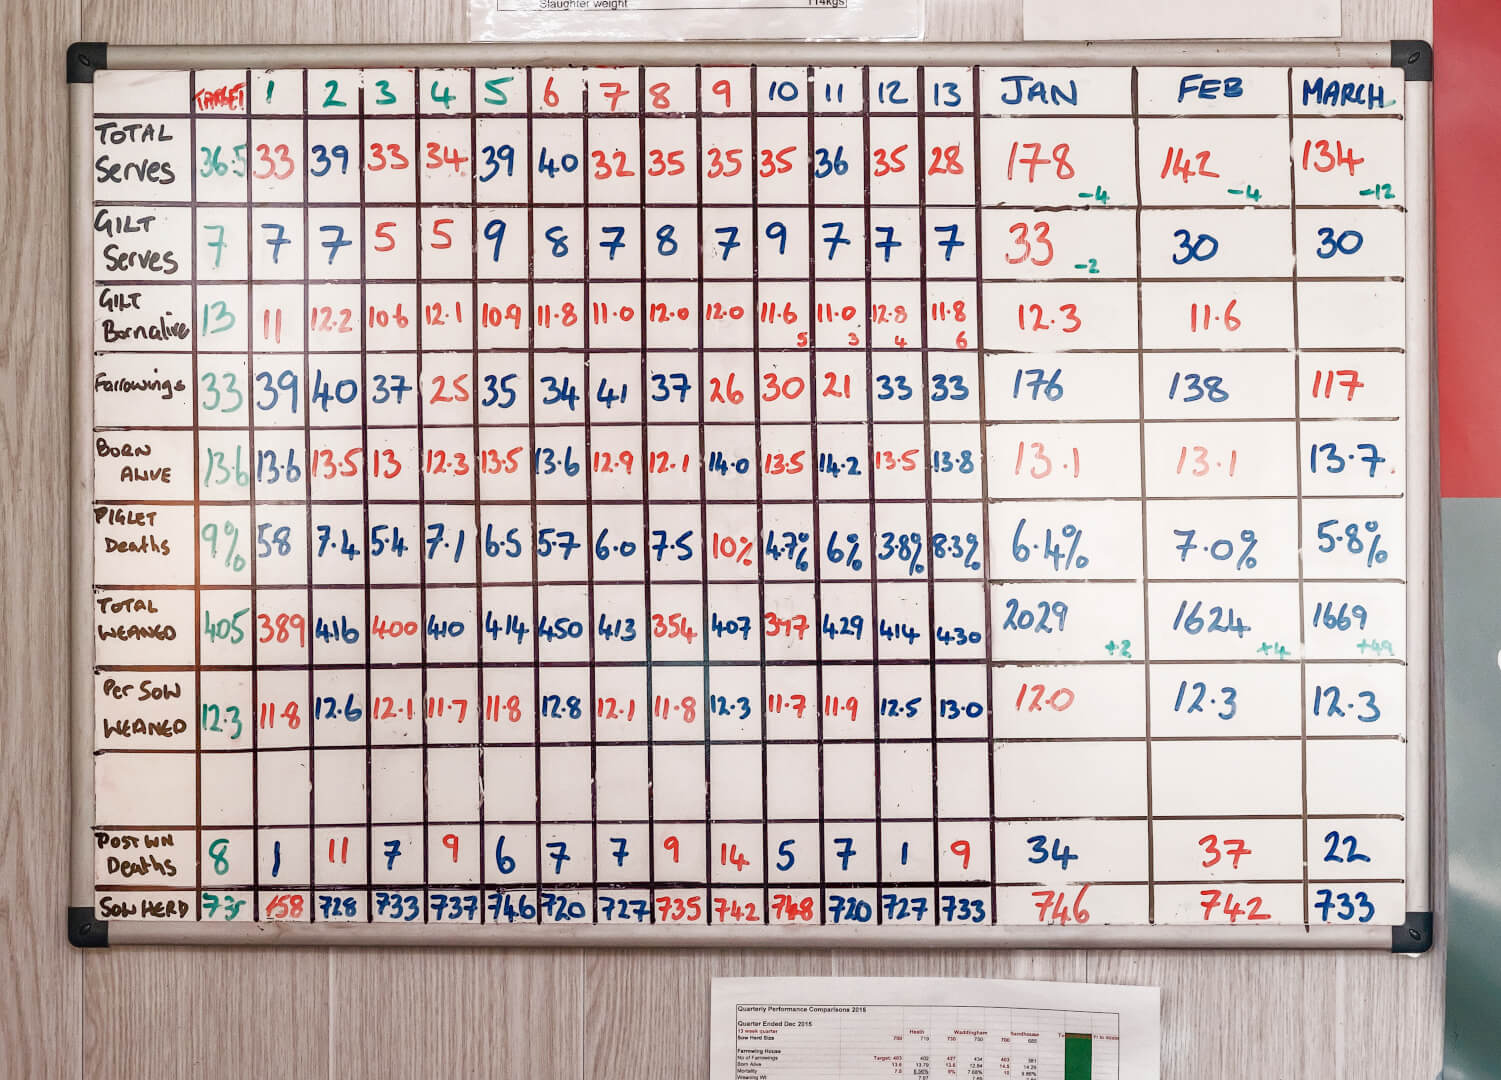 Slaughter weight 114kgs
TARGET 1 2 3 4 5 6 7 8 9 10 11 12 13 JAN FEB MARCH
TOTAL Serves 36.5 33 39 33 34 39 40 32 35 35 35 36 35 28 178 -4 142 -4 134 -12
GILT Serves 7 7 7 5 5 9 8 7 8 7 9 7 7 7 33 -2 30 30
GILT Bornalive 13 11 12.2 10.6 12.1 10.9 11.8 11.0 12.0 12.0 11.6 5 11.0 3 12.8 4 11.8 6 12.3 11.6
Farrowings 33 39 40 37 25 35 34 41 37 26 30 21 33 33 176 138 117
BORN ALIVE 13.6 13.6 13.5 13 12.3 13.5 13.6 12.9 12.1 14.0 13.5 14.2 13.5 13.8 13.1 13.1 13.7
PIGLET Deaths 9% 58 7.4 5.4 7.1 6.5 5.7 6.0 7.5 10% 4.7% 6% 3.8% 8.3% 6.4% 7.0% 5.8%
TOTAL WEANED 405 389 416 400 410 414 450 413 354 407 347 429 414 430 2029 +2 1624 +4 1669 +49
Per SOW WEANED 12.3 11.8 12.6 12.1 11.7 11.8 12.8 12.1 11.8 12.3 11.7 11.9 12.5 13.0 12.0 12.3 12.3
POST WN Deaths 8 1 11 7 9 6 7 7 9 14 5 7 1 9 34 37 22
SOW HERD 735 758 728 733 737 746 720 727 735 742 748 720 727 733 746 742 733
Quarterly Performance Comparisons 2015
Quarter Ended Dec 2015
13 week quarter Heath Waddingham Sandhouse
Sow Herd Size
Farrowing House
No of Farrowings
Born Alive
Mortality
Weaning Wt